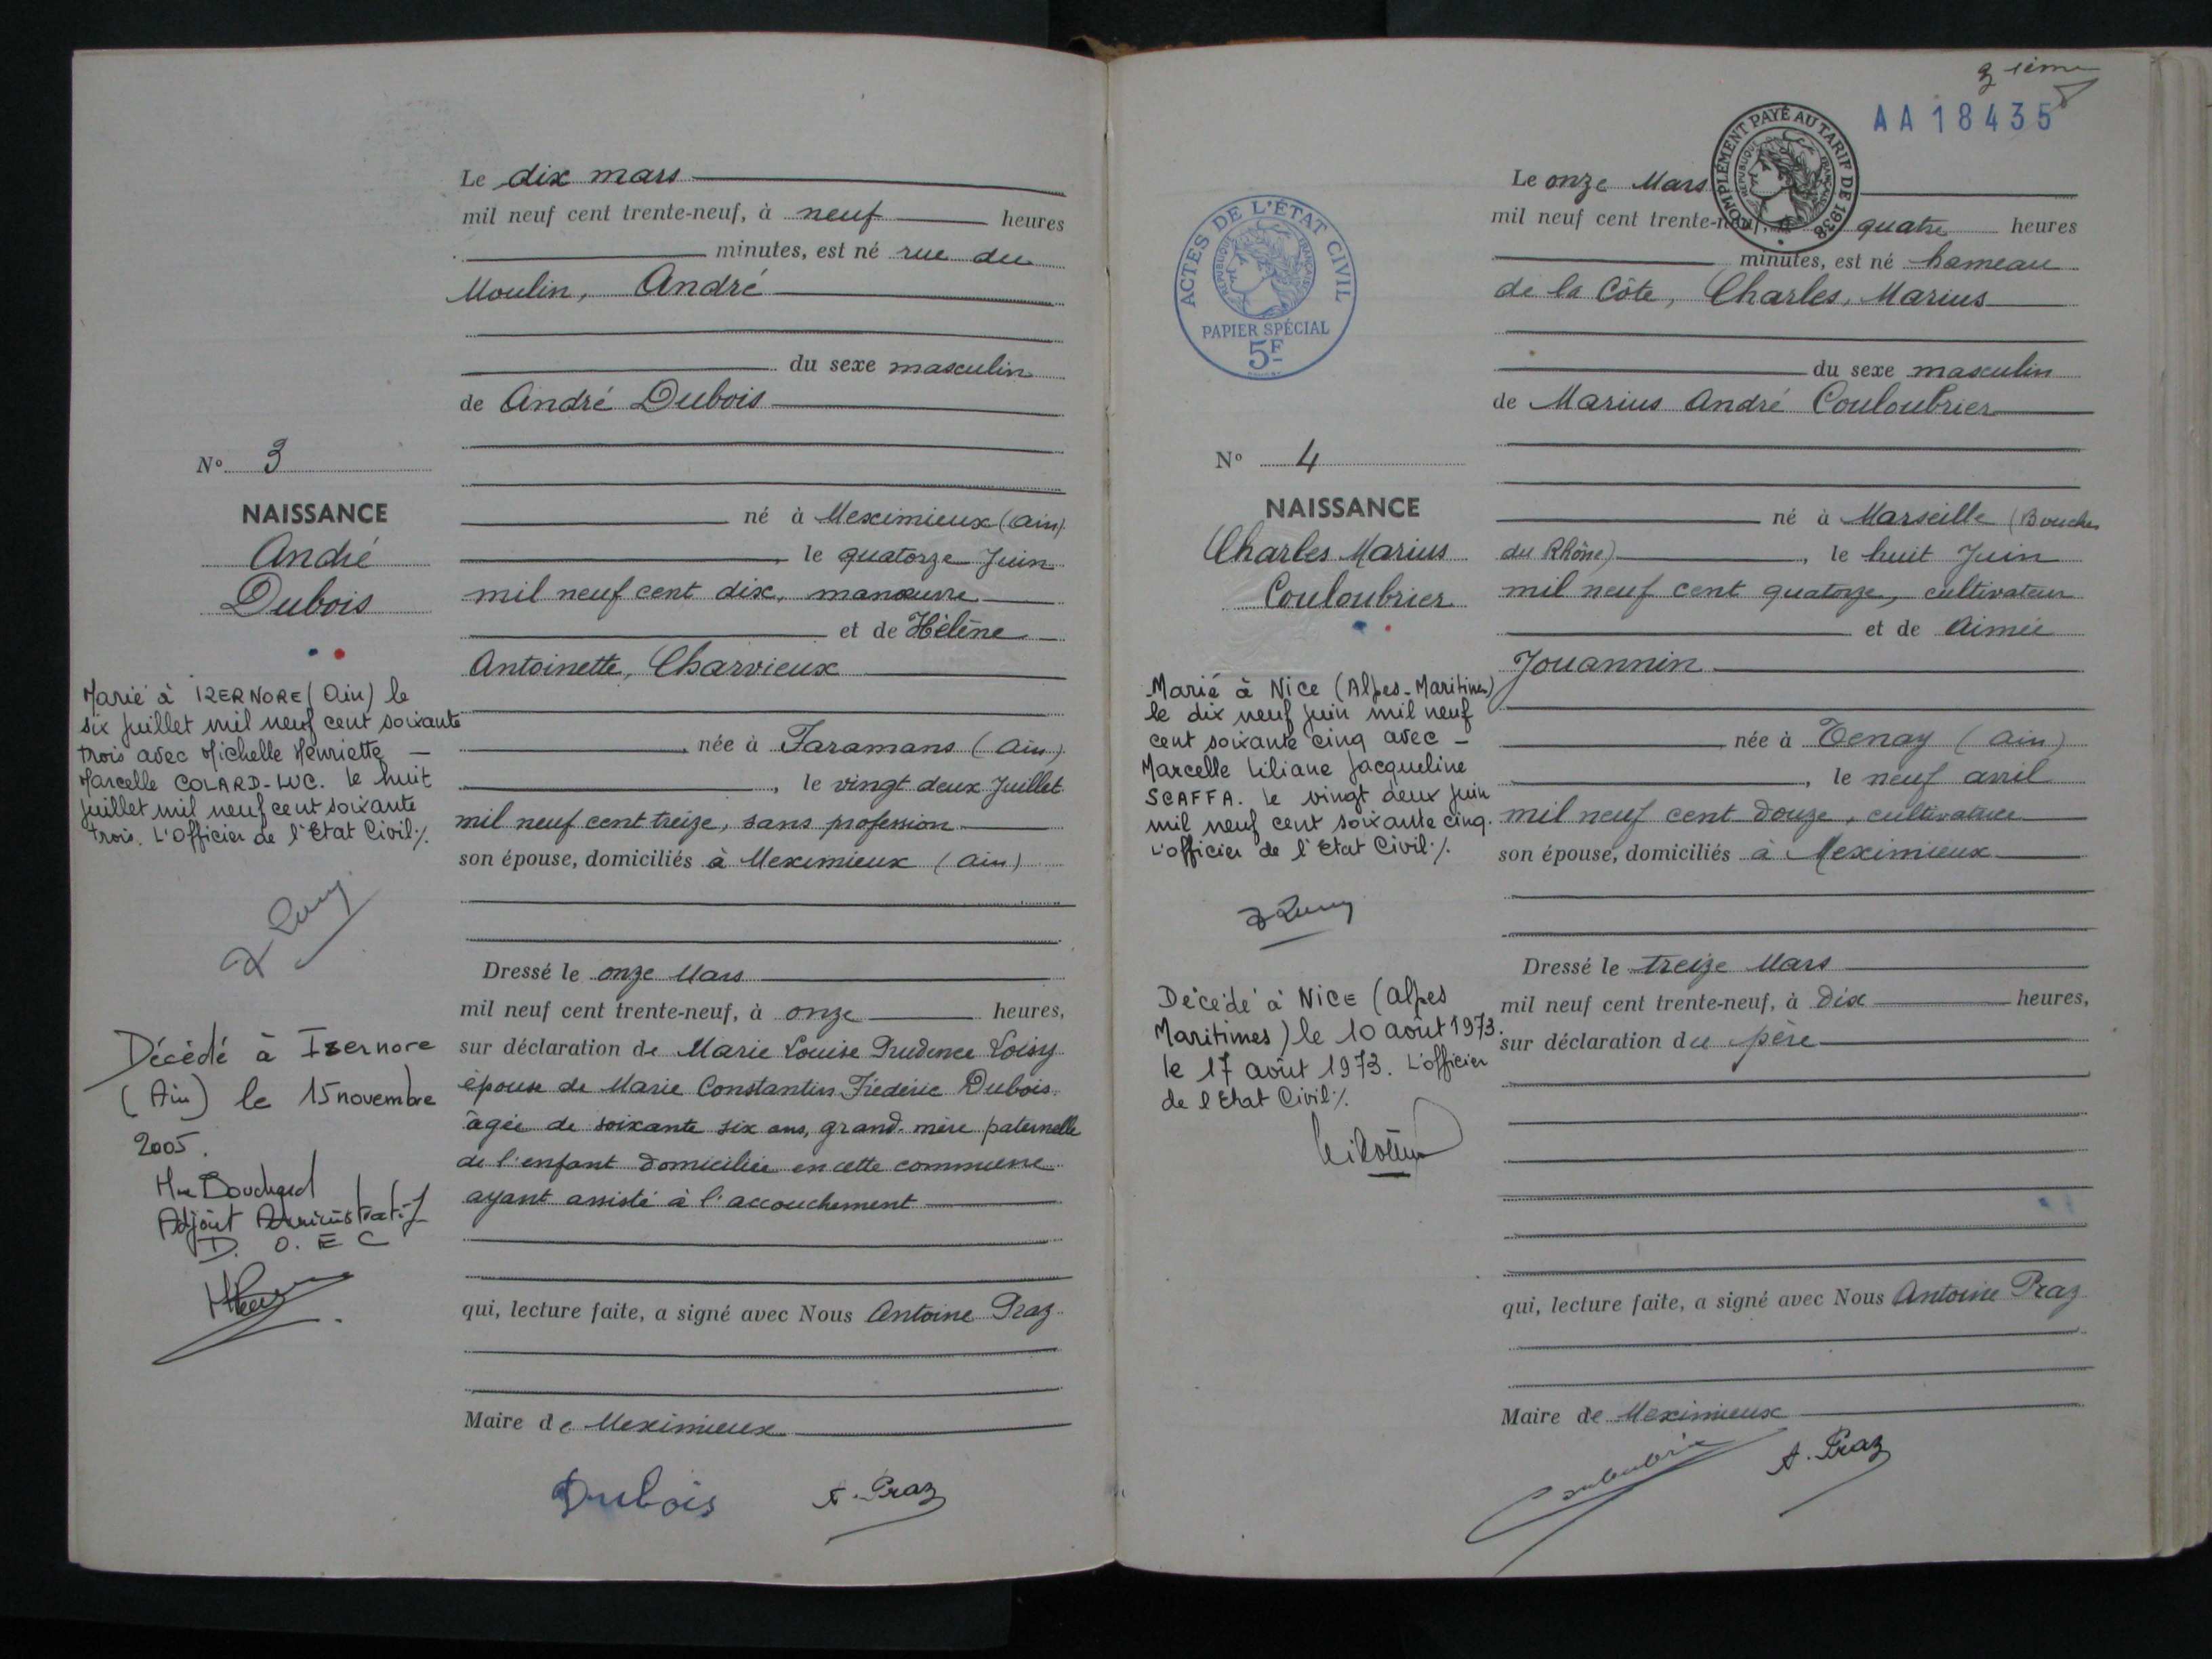 Le dix mars
mil neuf cent trente-neuf, à neuf heures
minutes, est né rue du
Moulin, André
du sexe masculin
de André Dubois
né à Meximieux (Ain)
le quatorze Juin
mil neuf cent dix, manœuvre
et de Hélène
Antoinette, Charvieux
née à Faramans (Ain)
, le vingt deux Juillet
mil neuf cent treize, sans profession
son épouse, domiciliés à Meximieux (Ain)
Dressé le onze Mars
mil neuf cent trente-neuf, à onze heures,
sur déclaration de Marie Louise Prudence Loisy
épouse de Marie Constantin Fréderic Dubois
âgée de soixante six ans, grand-mère paternelle
de l'enfant domiciliée en cette commune
ayant assisté à l'accouchement
qui, lecture faite, a signé avec Nous Antoine Praz
Maire de Meximieux
Dubois A. Praz
No 3
NAISSANCE
André
Dubois
Marié à IZERNORE (Ain) le
six juillet mil neuf cent soixante
trois avec Michelle Henriette –
Marcelle COLARD-LUC. le huit
juillet mil neuf cent soixante
trois. L'Officier de l'Etat Civil ./.
Décédé à Izernore
(Ain) le 15 novembre
2005.
Mme Bouchard
Adjoint Administratif
D. O. E C
3 ième
AA18435
COMPLÉMENT PAYÉ AU TARIF DE 1938
RÉPUBLIQUE FRANÇAISE
ACTES DE L'ÉTAT CIVIL
RÉPUBLIQUE FRANÇAISE
PAPIER SPÉCIAL
5F
Le onze Mars
mil neuf cent trente-neuf, à quatre heures
minutes, est né hameau
de la Côte, Charles, Marius
du sexe masculin
de Marius André Couloubrier
né à Marseille (Bouches
du Rhône) , le huit Juin
mil neuf cent quatorze, cultivateur
et de Aimée
Jouannin
née à Tenay (Ain)
, le neuf avril
mil neuf cent douze, cultivatrice
son épouse, domiciliés à Meximieux
Dressé le treize Mars
mil neuf cent trente-neuf, à dix heures,
sur déclaration du père
qui, lecture faite, a signé avec Nous Antoine Praz
Maire de Meximieux
Couloubrier A. Praz
No 4
NAISSANCE
Charles Marius
Couloubrier
Marié à Nice (Alpes-Maritimes)
le dix neuf juin mil neuf
cent soixante cinq avec –
Marcelle Liliane Jacqueline
SCAFFA. le vingt deux juin
mil neuf cent soixante cinq.
L'officier de l'Etat Civil ./.
Décédé à NICE (Alpes
Maritimes) le 10 août 1973.
le 17 août 1973. L'officier
de l'Etat Civil ./.